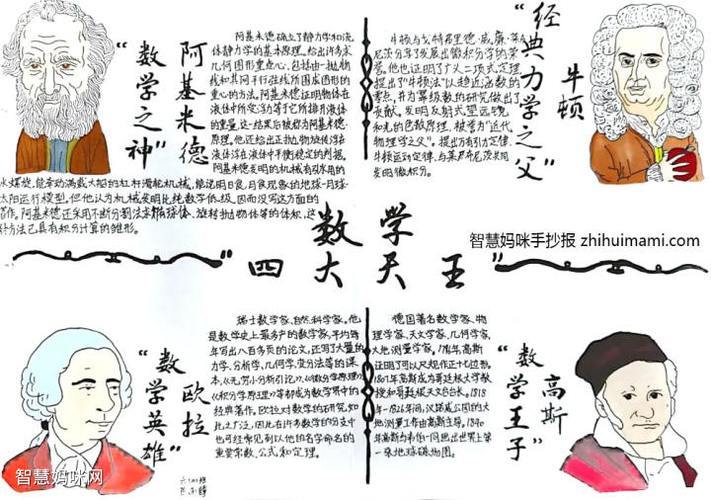 阿基米德
“数学之神”
阿基米德确立了静力学和流
体静力学的基本原理。给出许多求
几何图形重心，包括由一抛物
线和其网平行弦线所围成图形的
重心的方法。阿基米德证明物体在
液体中所受浮力等于它所排开液体
的重量，这一结果后被称为阿基米德
原理。他还给出正抛物旋转体浮在
液体中平衡稳定的判据。
阿基米德发明的机械有引水用的
水螺旋，能牵动满载大船的杠杆滑轮机械，能说明日食，月食现象的地球-月球-
太阳运行模型。但他认为机械发明比纯数学低级，因而没写这方面的
著作。阿基米德还采用不断分割法求椭球体、旋转抛物体等的体积，这
种方法已具有积分计算的雏形。
牛顿
“经典力学之父”
牛顿与戈特弗里德·威廉·莱布
尼茨分享了发展出微积分学的荣
誉。他也证明了广义二项式定理，
提出了“牛顿法”以趋近函数的
零点，并为幂级数的研究做出了
贡献。发明反射式望远镜
和光的色散原理，被誉为“近代
物理学之父”。提出万有引力定律、
牛顿运动定律，与莱布尼茨共同
发明微积分。
数学
“四大天王”
智慧妈咪手抄报 zhihuimami.com
欧拉
“数学英雄”
瑞士数学家、自然科学家。他
是数学史上最多产的数学家，平均每
年写出八百多页的论文，还写了大量的
力学、分析学、几何学、变分法等的课
本，《无穷小分析引论》、《微分学原理》、
《积分学原理》等都成为数学界中的
经典著作。欧拉对数学的研究如
此之广泛，因此在许多数学的分支中
也可经常见到以他的名字命名的
重要常数、公式和定理。
高斯
“数学王子”
德国著名数学家、物
理学家、天文学家、几何学家，
大地测量学家。1796年，高斯
证明了可以尺规作正十七边形。
1807年高斯成为哥廷根大学教
授和哥廷根天文台台长。1818
年-1826年间，汉诺威公国的大
地测量工作由高斯主导。1840
年高斯与韦伯一同画出世界上第
一张地球磁场图。
智慧妈咪网